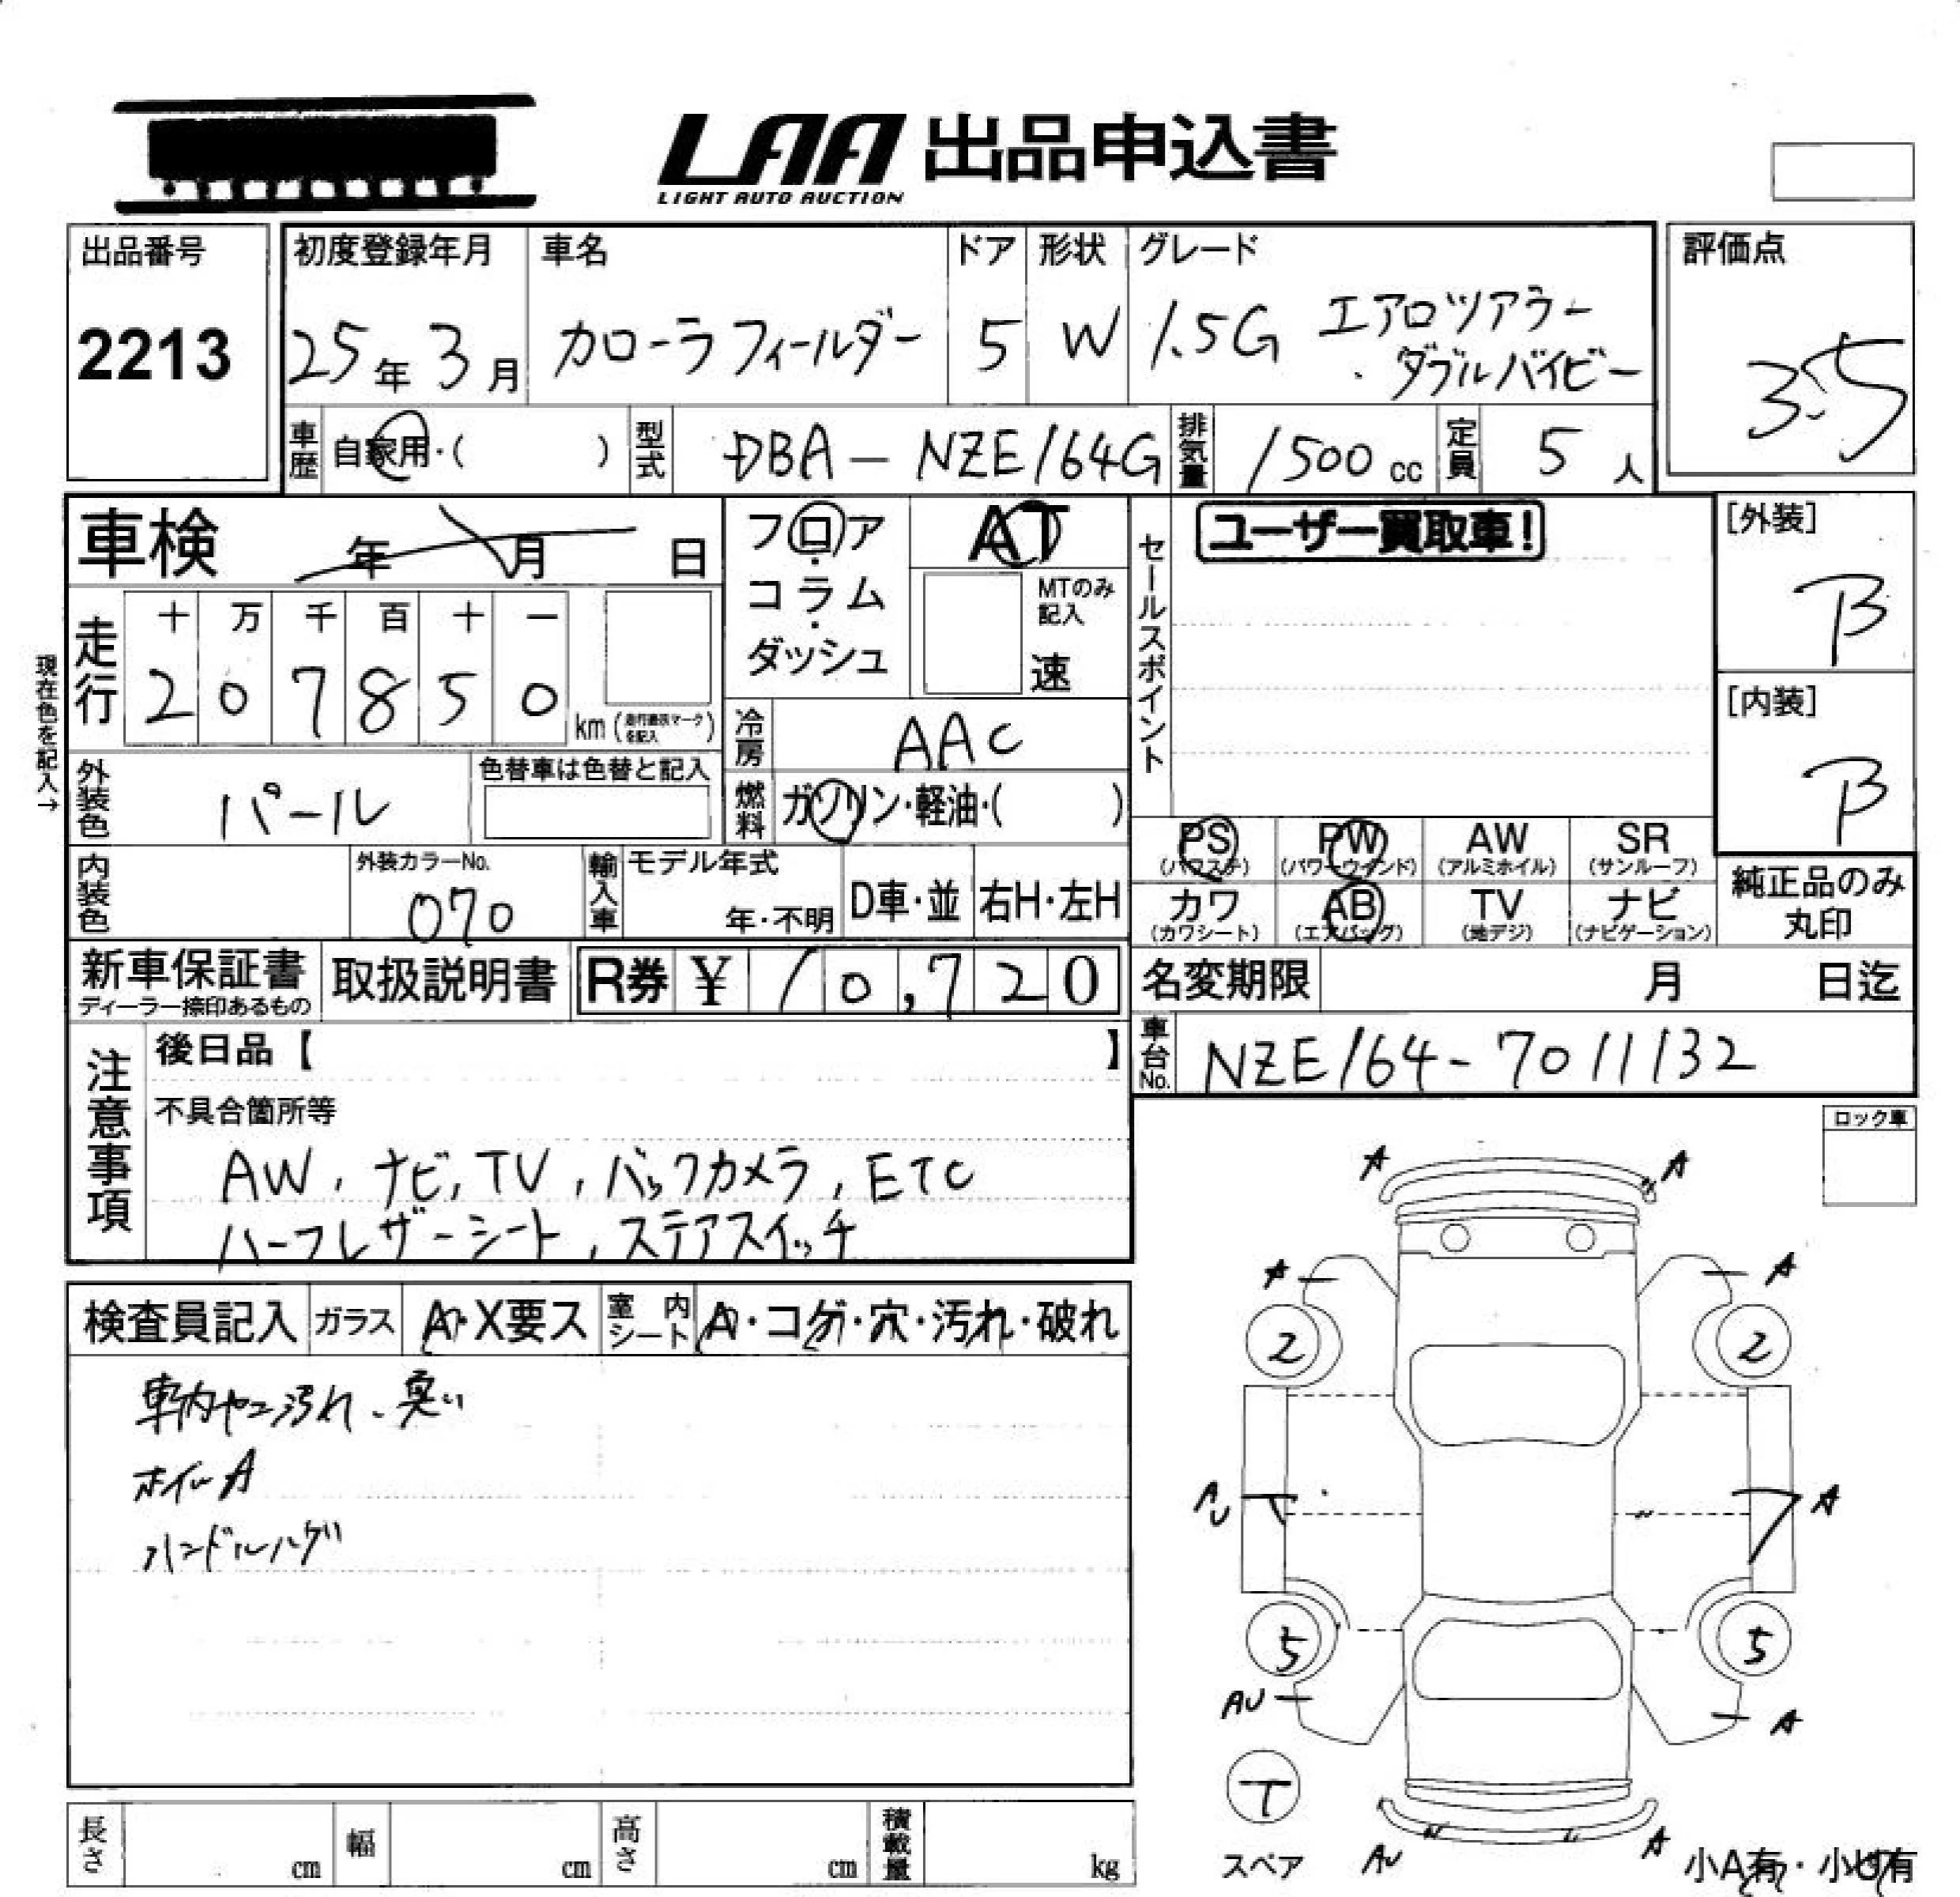 LAA 出品申込書
LIGHT AUTO AUCTION
出品番号
2213
初度登録年月
25年3月
車名
カローラフィールダー
ドア
5
形状
W
グレード
1.5G エアロツアラー
・ダブルバイビー
評価点
3.5
車歴
自家用・( )
型式
DBA-NZE164G
排気量
1500cc
定員
5人
車検 年 月 日
フロア・コラム・ダッシュ
AT
MTのみ記入
速
セールスポイント
ユーザー買取車!
[外装]
B
[内装]
B
現在色を記入→
走行
十 万 千 百 十 一
2 0 7 8 5 0 km
冷房
AAC
外装色
パール
色替車は色替と記入
燃料
ガソリン・軽油・( )
PS (パワステ)
PW (パワーウインド)
AW (アルミホイル)
SR (サンルーフ)
カワ (カワシート)
AB (エアバッグ)
TV (地デジ)
ナビ (ナビゲーション)
純正品のみ
丸印
内装色
外装カラーNo.
070
輸入車
モデル年式
年・不明
D車・並
右H・左H
新車保証書
ディーラー捺印あるもの
取扱説明書
R券 ¥ 10,720
名変期限 月 日迄
車台No.
NZE164-7011132
注意事項
後日品【 】
不具合箇所等
AW, ナビ, TV, バックカメラ, ETC
ハーフレザーシート, ステアスイッチ
ロック車
検査員記入
ガラス
A・X要ス
室内シート
A・コゲ・穴・汚れ・破れ
車内ヤニ汚れ、臭い
ホイルA
ハンドルハゲ
A A
A A
2 2
AU A
5 5
AU A
T
スペア
AU A
小A有・小U有
長さ cm
幅 cm
高さ cm
積載量 kg